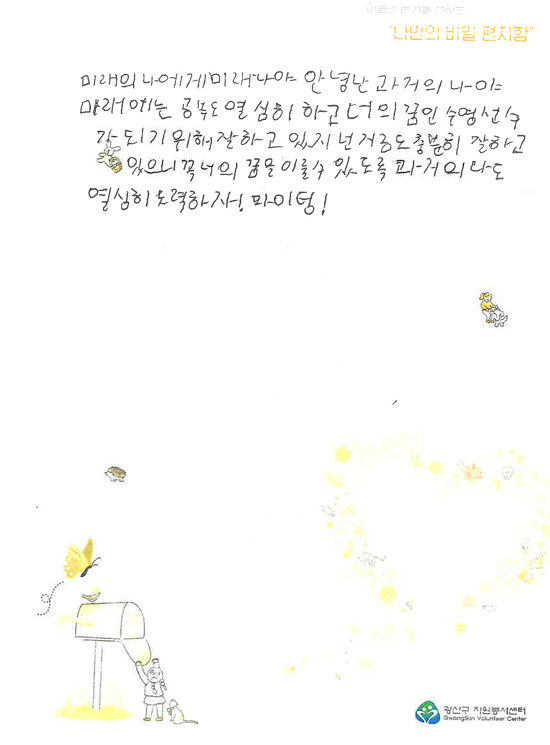 "나만의 비밀 편지함"
미래의 나에게 미래 나야 안녕 난 과거의 나야
미래에는 공부도 열심히 하고 너의 꿈인 수영선수
가 되기 위해 잘하고 있지 넌 지금도 충분히 잘하고
있으니 꼭 너의 꿈을 이룰 수 있도록 과거의 나도
열심히 노력하자! 파이팅!
광산구 자원봉사센터
GwangSan Volunteer Center